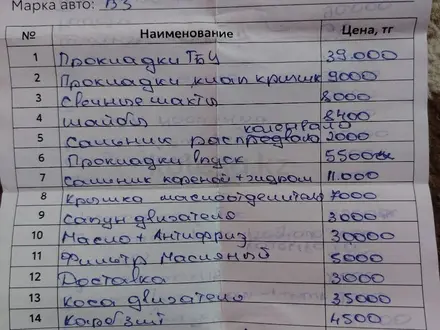 Марка авто: B3
№ Наименование Цена, тг
1 Прокладки ГБЦ 39.000
2 Прокладки клап крышк 9000
3 Свечные шахты 8000
4 шайбы 8400
коленвало
5 Сальник распредвало 2000
6 Прокладки впуск 5500
7 Сальник кореной + гидром 11.000
8 Крышка маслоотделителя 7000
9 Сапун двигателя 3000
10 Масло + Антифриз 30000
11 Фильтр Масляный 5000
12 Доставка 3000
13 Коса двигателя 35000
14 4500